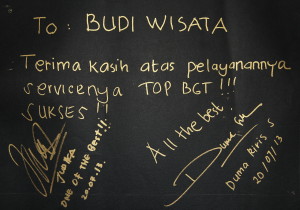 To : BUDI WISATA
Terima kasih atas pelayanannya
servicenya TOP BGT !!!
SUKSES !!
All the best
ONE OF THE BEST!!
20.08.13
Duma Riris S
20/07/13